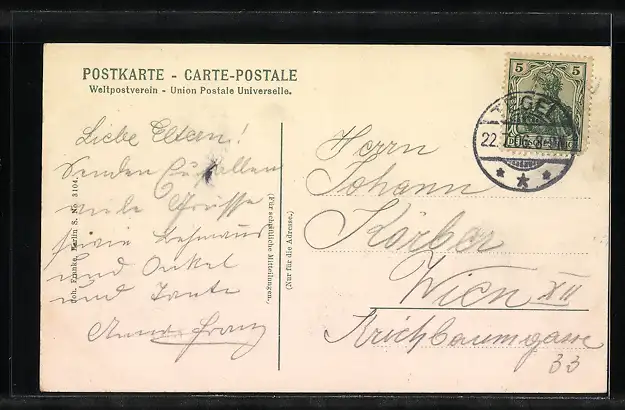 POSTKARTE - CARTE-POSTALE
Weltpostverein - Union Postale Universelle.
Liebe Eltern!
Senden Euch allen
viele Grüsse
sowie
und Onkel
und Tante
Anna Franz
Joh. Franke, Berlin S. No. 3104.
(Für schriftliche Mitteilungen.)
(Nur für die Adresse.)
5 5
TEGEL
22.
06. 8-
* * *
Herrn
Johann
Körber
Wien XII
Krichbaumgasse
33